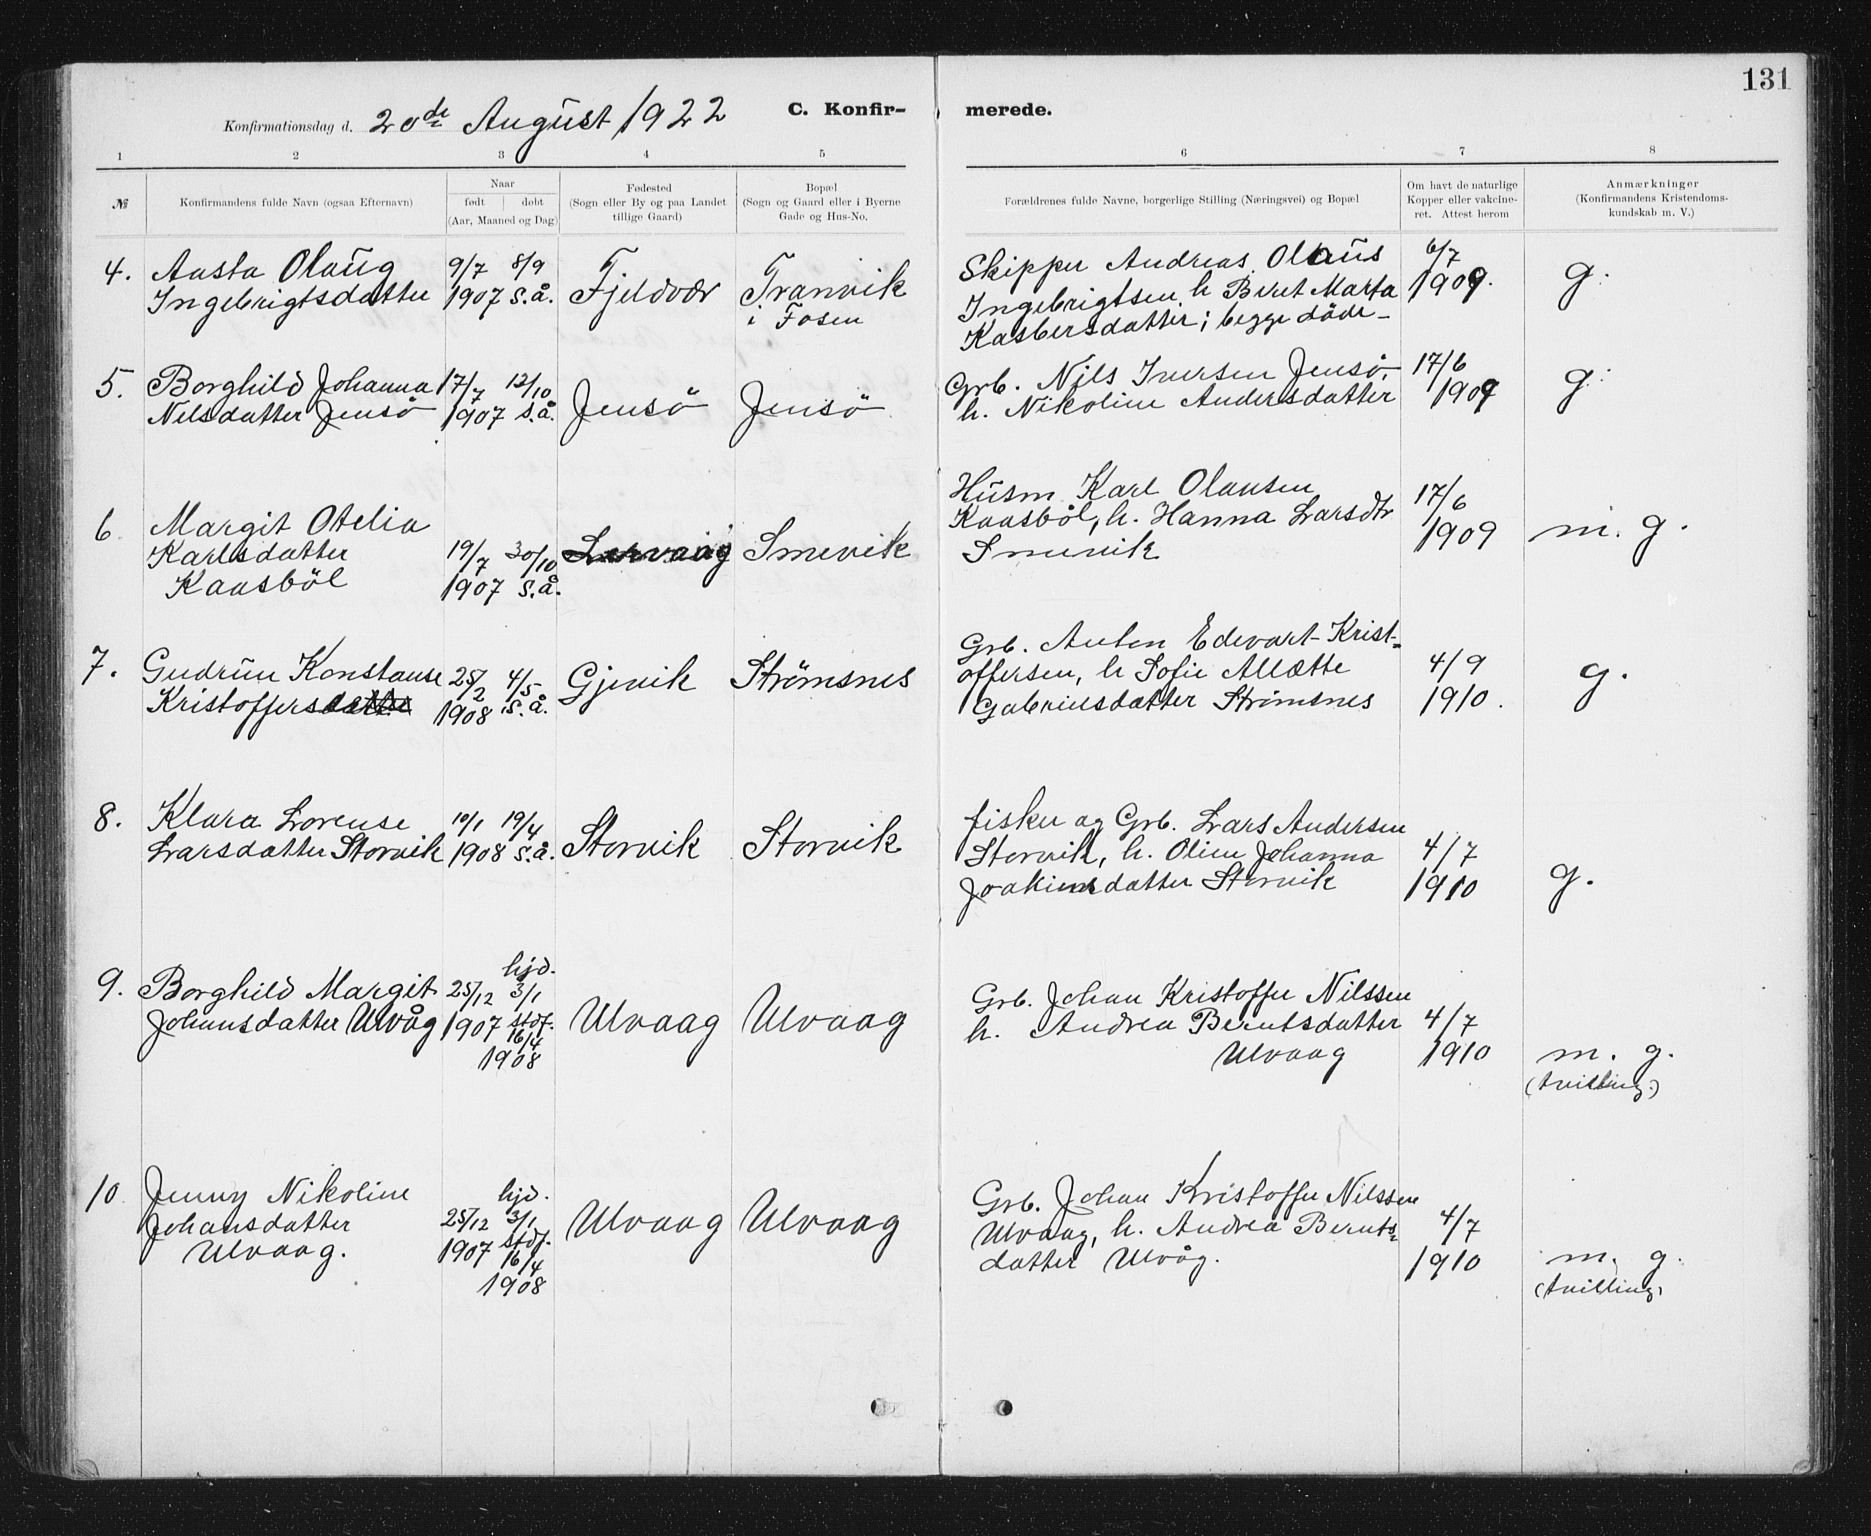 131
Konfirmationsdag d. 20de August 1922
C. Konfir- merede.
1 2 3 4 5 6 7 8
№
Konfirmandens fulde Navn (ogsaa Efternavn)
Naar
født | døbt
(Aar, Maaned og Dag)
Fødested
(Sogn eller By og paa Landet
tillige Gaard)
Bopæl
(Sogn og Gaard eller i Byerne
Gade og Hus-No.
Forældrenes fulde Navne, borgerlige Stilling (Næringsvei) og Bopæl
Om havt de naturlige
Kopper eller vakcine-
ret. Attest herom
Anmærkninger
(Konfirmandens Kristendoms-
kundskab m. V.)
4. Aasta Olaug
Ingebrigtsdatter
9/7 8/9
1907 s.å.
Fjeldvær
Tranvik
i Fosen
Skipper Andreas Olaus
Ingebrigtsen h Beret Marta
Kasbersdatter; begge döde-
6/7
1909.
g.
5. Borghild Johanna
Nilsdatter Jensö
17/7 12/10
1907 s.å.
Jensö
Jensö
Grb. Nils Iversen Jensö,
h. Nikoline Andersdatter
17/6
1909
g.
6. Margit Otelia
Karlsdatter
Kaasböl
19/7 30/10
1907 s.å.
Smevik
Husm Karl Olausen
Kaasböl, h. Hanna Larsdtr
Smevik
17/6
1909
m. g.
7. Gudrun Konstanse
Kristoffersdatter
25/2 4/5
1908 s.å.
Gjevik
Strømsnes
Grb. Anton Edevart Krist-
offersen, h Sofie Allætte
Gabrielsdatter Strømsnes
4/9
1910.
g.
8. Klara Lorense
Larsdatter Storvik
10/1 19/4
1908 s.å.
Storvik
Storvik
fisker og Grb. Lars Andersen
Storvik, h. Oline Johanna
Joakimsdatter Storvik
4/7
1910
g.
9. Borghild Margit
Johansdatter Ulvåg
hjd.
25/12 3/1
1907 stdf.
16/4
1908
Ulvaag
Ulvaag
Grb. Johan Kristoffer Nilssen
h. Andrea Berntsdatter
Ulvaag
4/7
1910
m. g.
(tvilling)
10 Jenny Nikoline
Johansdatter
Ulvaag.
hjd.
25/12 3/1
1907 stdf.
16/4
1908
Ulvaag
Ulvaag
Grb. Johan Kristoffer Nilssen
Ulvaag, h. Andrea Bernts-
datter Ulvåg.
4/7
1910
m. g.
(tvilling)